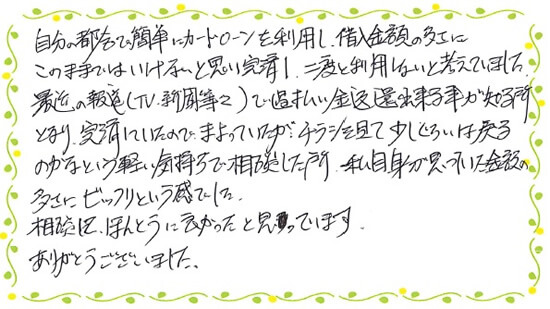 自分の都合で簡単にカードローンを利用し、借入金額の多さに
このままではいけないと思い完済し、二度と利用しないと考えていました。
最近の報道(TV、新聞等)で過払い金返還出来る事が知る所
となり、完済していたので、まよっていたが、チラシを見て少しぐらいは戻る
のかなという軽い気持ちで相談した所、私自身が思っていた金額の
多さにビックリという感でした。
相談は、ほんとうに良かったと思っています。
ありがとうございました。